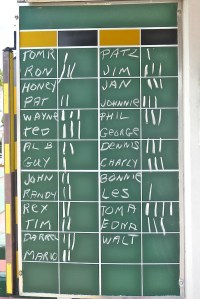 TOMK PATZ
RON JIM
HONEY JAN
PAT JOHNNIE
WAYNE PHIL
TED GEORGE
AL B DENNIS
GUY CHARLY
JOHN BONNIE
RANDY LES
REX TOMA
TIM EDNA
DARREL WALT
MARK